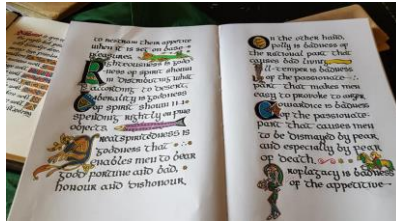 to restrain their appetite
when it is set on base
pleasures.
Righteousness is good-
ness of spirit shown
in distributing what
according to desert.
Liberality is goodness
of spirit shown in
spending rightly on fine
objects.
Great spiritedness is
goodness that
enables men to bear
good fortune and bad,
honour and dishonour.
On the other hand,
Folly is badness of
the rational part that
causes bad living.
Ill-temper is badness
of the passionate
part that makes men
easy to provoke to anger.
Cowardice is badness
of the passionate
part that causes men
to be dismayed by fear
and especially by fear
of death.
Profligacy is badness
of the appetitive